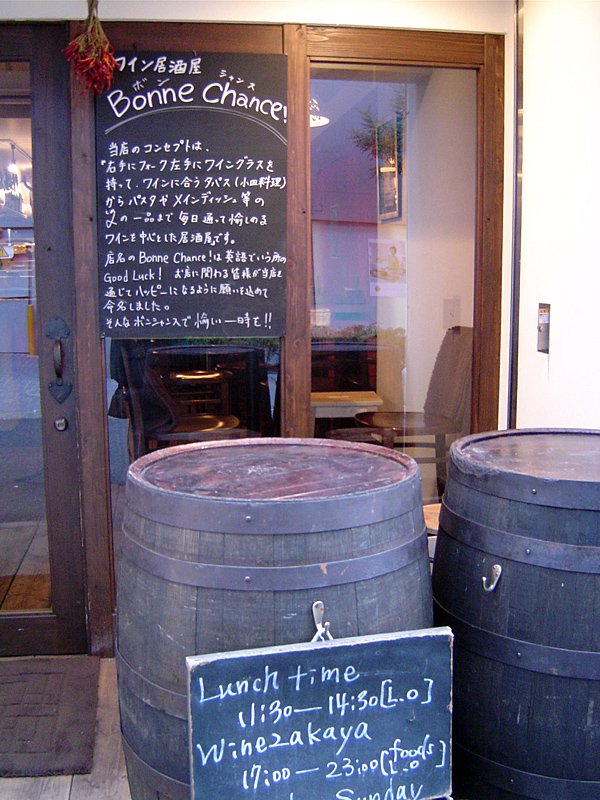 ワイン居酒屋
ボン シャンス
Bonne Chance!
当店のコンセプトは、
"右手にフォーク左手にワイングラスを
持って、ワインに合うタパス(小皿料理)
からパスタやメインディッシュ等の
〆の一品まで毎日通って愉しめる
ワインを中心とした居酒屋です。
店名のBonne Chance!は英語でいう所の
Good Luck! お店に関わる皆様が当店を
通じてハッピーになるように願いを込めて
命名しました。
そんなボンシャンスで愉しい一時を!!
Lunch time
11:30—14:30[L.O]
Winezakaya
17:00—23:00[foods L.O]
Sunday